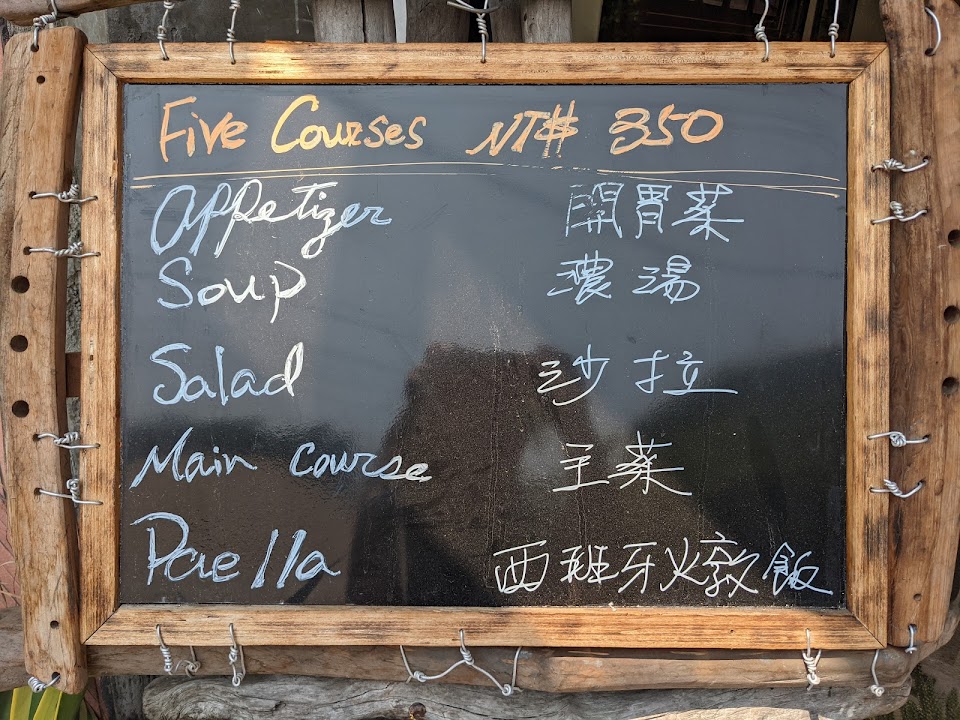 Five Courses NT$ 350
Appetizer 開胃菜
Soup 濃湯
Salad 沙拉
Main course 主菜
Paella 西班牙火敦飯